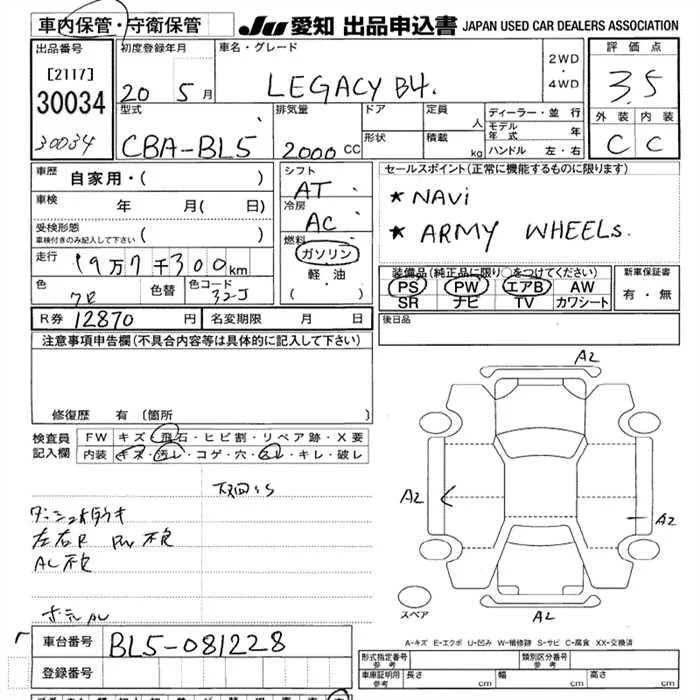 車内保管・守衛保管
JU 愛知 出品申込書 JAPAN USED CAR DEALERS ASSOCIATION
出品番号
[2117]
30034
30034
初度登録年月
20 5月
車名・グレード
LEGACY B4.
2WD
・
4WD
評価点
3.5
型式
CBA-BL5
排気量
2000CC
ドア
形状
定員
人
積載
kg
ディーラー・並行
モデル年式 年
ハンドル 左・右
外装 内装
C C
車歴 自家用・( )
車検 年 月( 日)
受検形態
車検付きのみ記入して下さい ( )
走行 19万7千300km
色
色替
色コード
32J
シフト
AT
冷房
AC
燃料
ガソリン
・
軽油
( )
セールスポイント(正常に機能するものに限ります)
★ NAVi
★ ARMY WHEELs.
装備品(純正品に限り○をつけてください)
PS PW エアB AW
SR ナビ TV カワシート
新車保証書
有・無
R券 12870円
名変期限 月 日
後日品
注意事項申告欄(不具合内容等は具体的に記入して下さい)
修復歴 有〔箇所 〕
検査員
記入欄
FW キズ・飛石・ヒビ割・リペア跡・X要
内装 キズ・汚レ・コゲ・穴・スレ・キレ・破レ
左右R PW 不良
AC不良
A2
A2
A2
A2
スペア
A-キズ E-エクボ U-凹み W-補修跡 S-サビ C-腐食 XX-交換済
車台番号 BL5-081228
登録番号
形式指定番号
参考
類別区分番号
参考
車庫証明用
参考
長さ cm
幅 cm
高さ cm